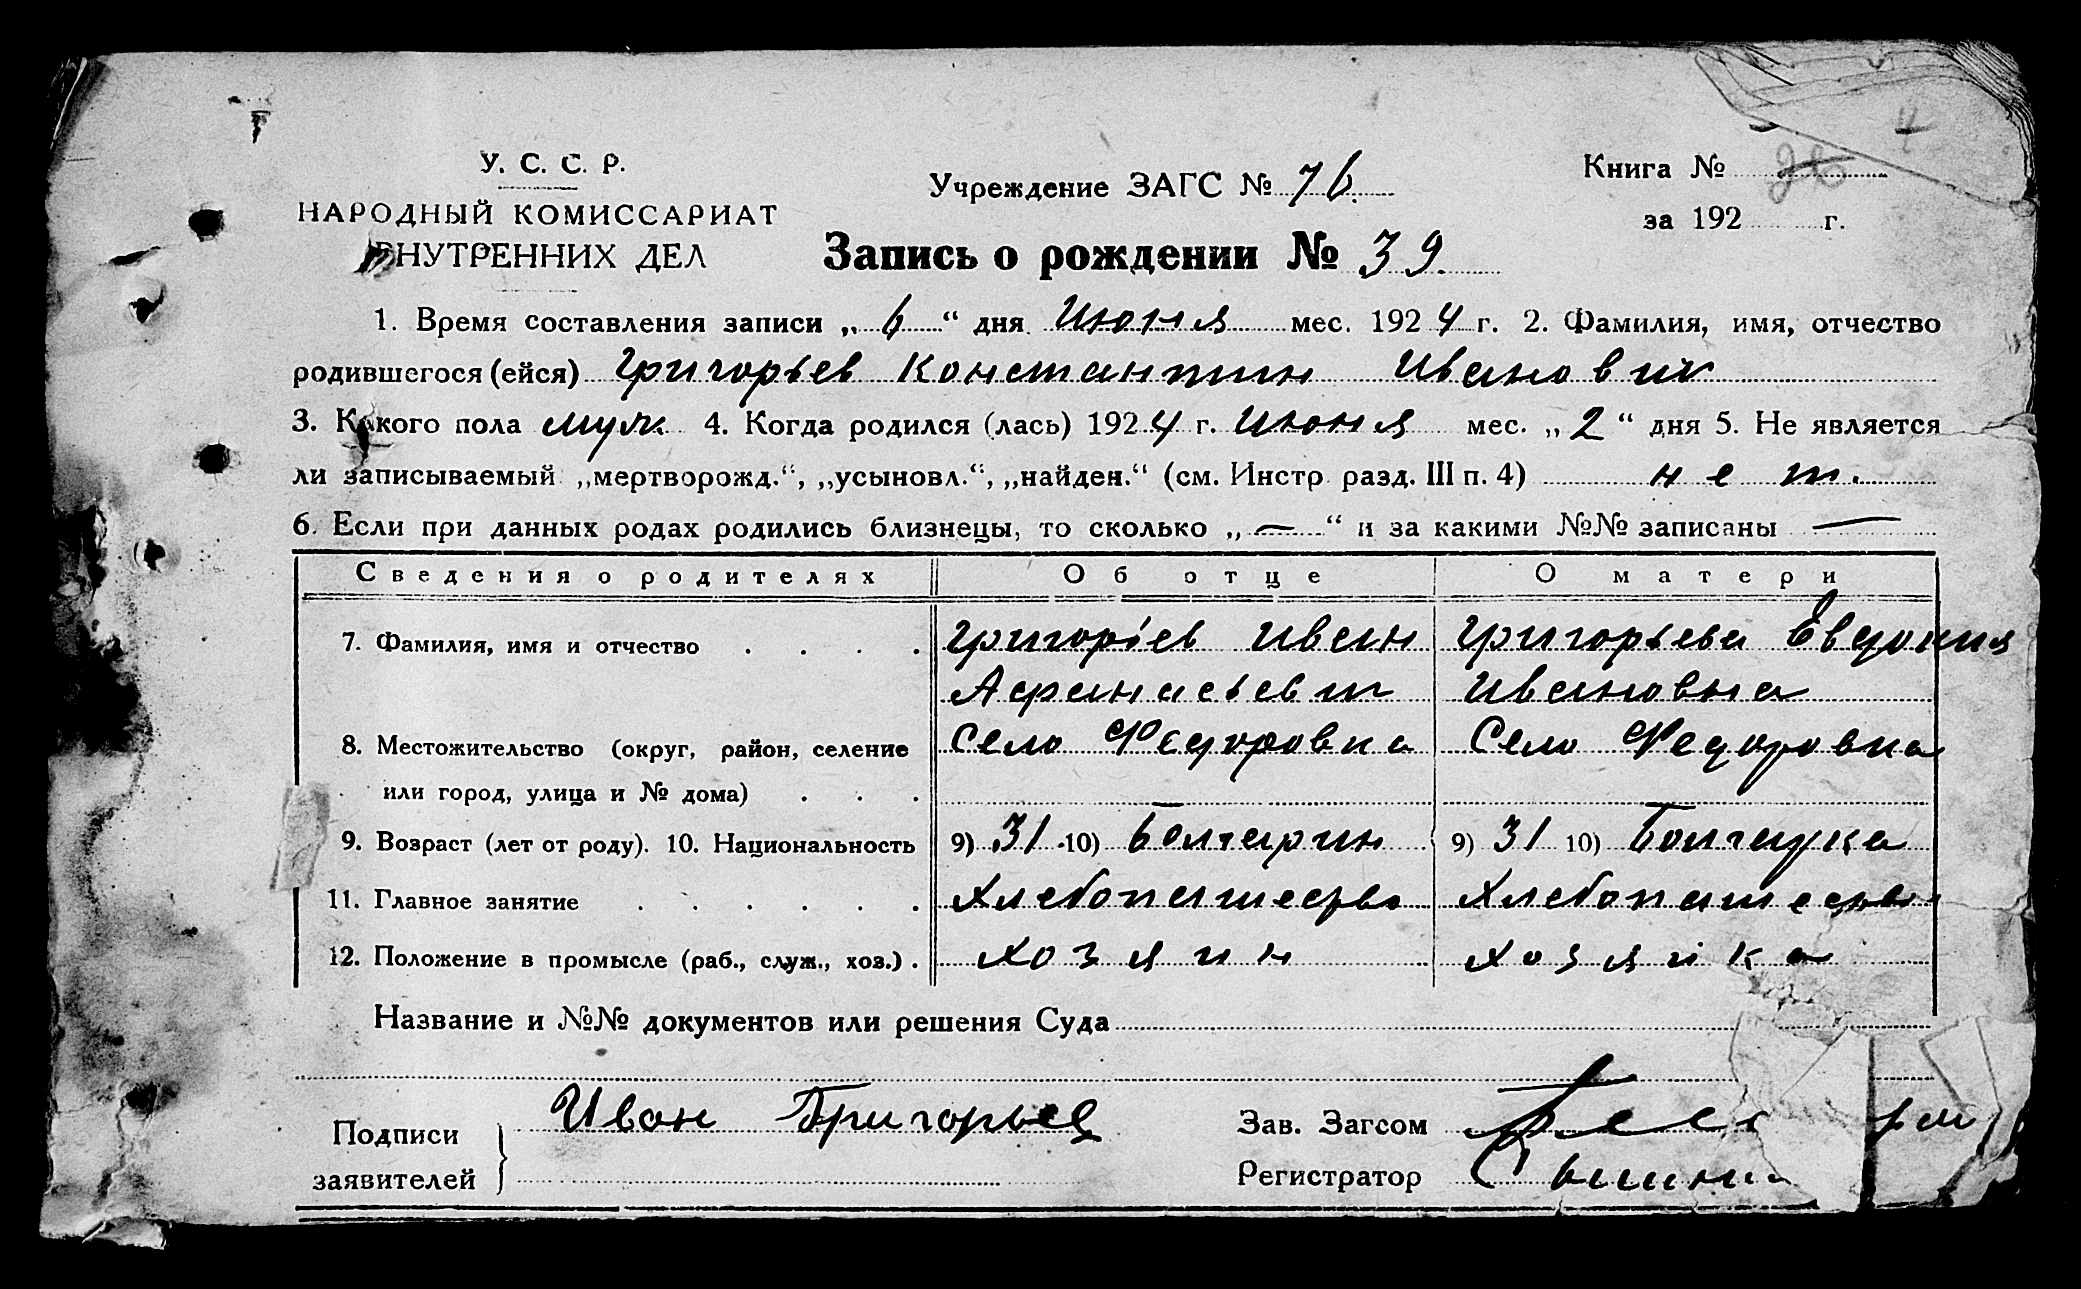 У. С. С. Р.
НАРОДНЫЙ КОМИССАРИАТ
ВНУТРЕННИХ ДЕЛ
Учреждение ЗАГС № 76.
Книга №
за 192 г.
4
Запись о рождении № 39.
1. Время составления записи „ 6 “ дня Июня мес. 1924 г. 2. Фамилия, имя, отчество
родившегося (ейся) Григорьев Константин Иванович
3. Какого пола муж. 4. Когда родился (лась) 1924 г. Июня мес. „ 2 “ дня 5. Не является
ли записываемый „мертворожд.“, „усыновл.“, „найден.“ (см. Инстр. разд. III п. 4) нет.
6. Если при данных родах родились близнецы, то сколько „ — “ и за какими №№ записаны —
Сведения о родителях Об отце О матери
7. Фамилия, имя и отчество . . . . Григорьев Иван Григорьева Евдокия
Афанасьевич Ивановна
8. Местожительство (округ, район, селение Село Федоровка Село Федоровка
или город, улица и № дома) . . .
9. Возраст (лет от роду). 10. Национальность 9) 31 10) Болгарин 9) 31 10) Болгарка
11. Главное занятие . . . . . . Хлебопашество Хлебопашество
12. Положение в промысле (раб., служ., хоз.) . хозяин хозяйка
Название и №№ документов или решения Суда
Подписи Иван Григорьев Зав. Загсом
заявителей Регистратор